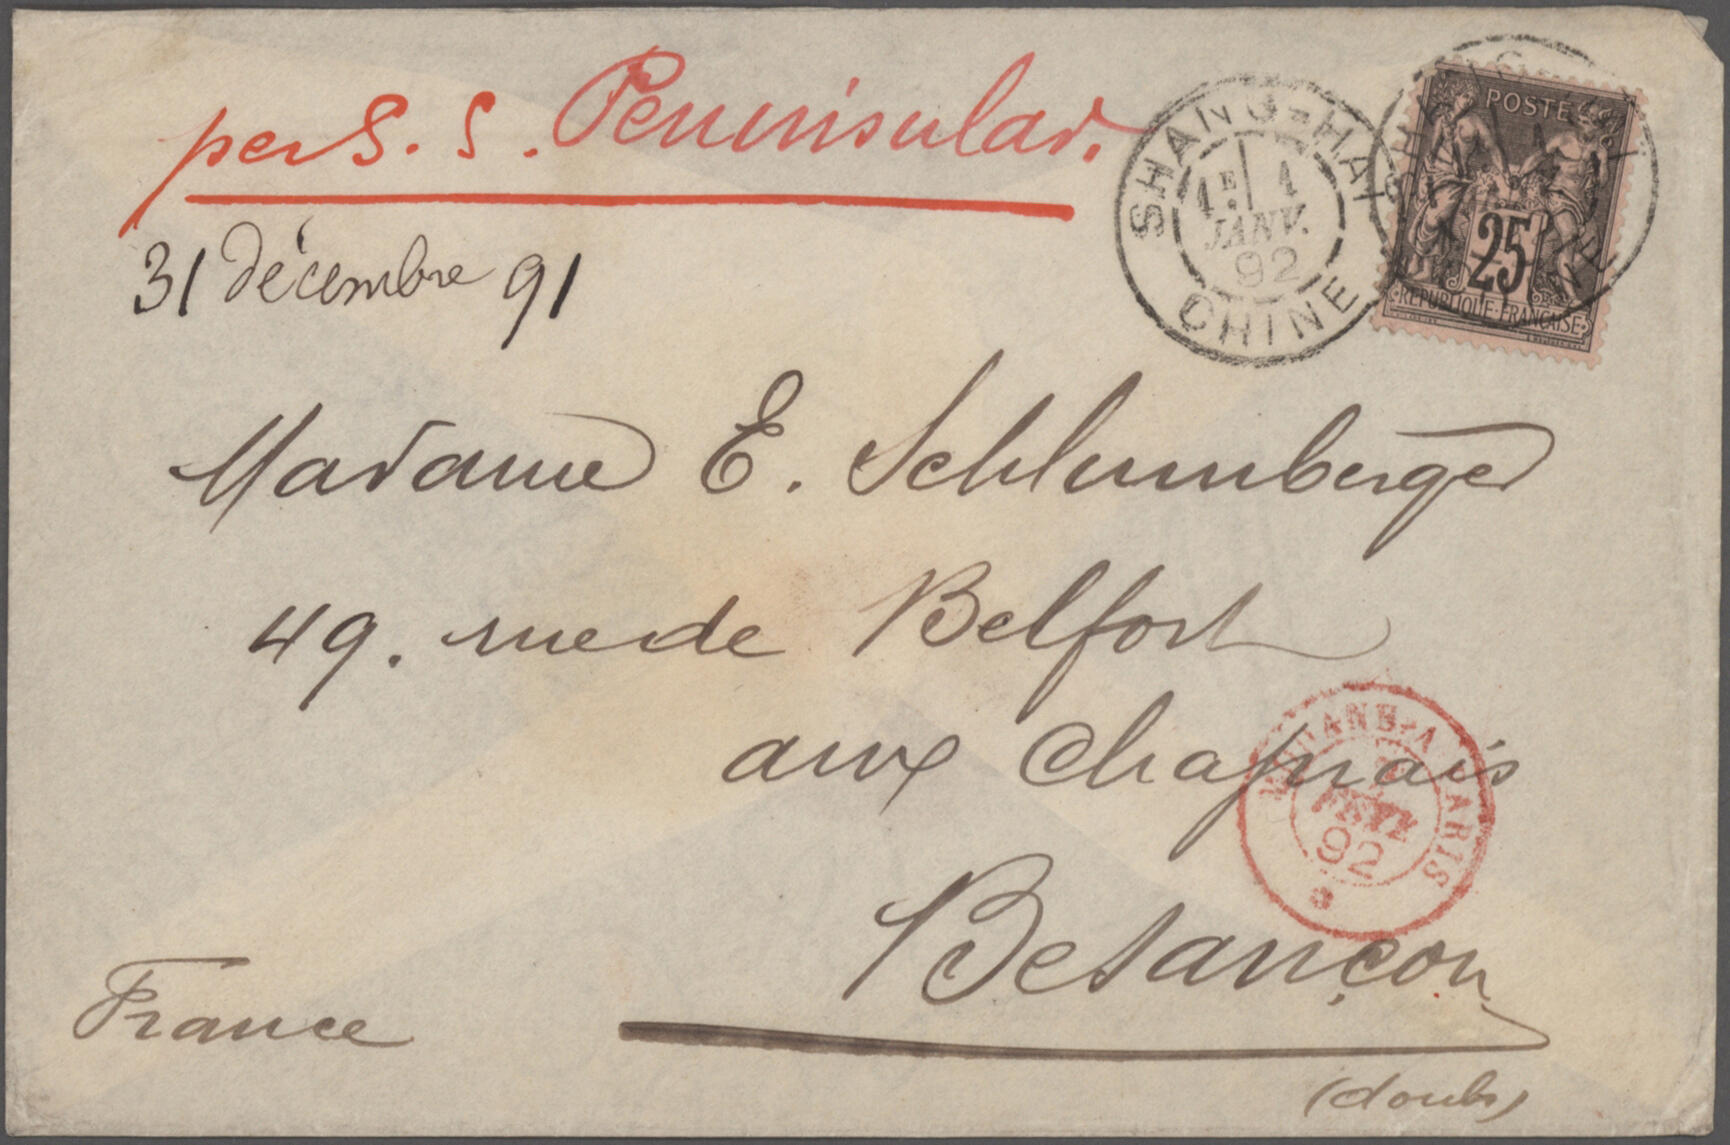 per S. S. Peninsular.
31 décembre 91
SHANG-HAI
1E 1
JANV.
92
CHINE
POSTE
25
REPUBLIQUE FRANCAISE
Madame E. Schlumberger
49. rue de Belfort
aux Chaprais
MODANE-A-PARIS
92
Besançon
France
(doubs)